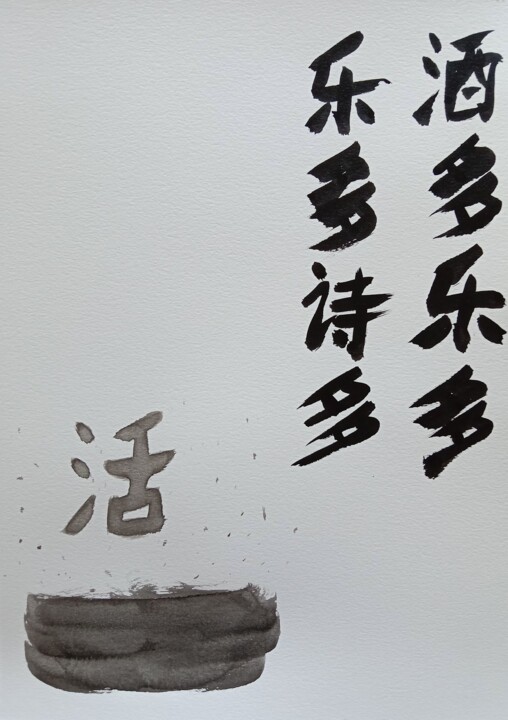 酒多乐多
乐多诗多
活